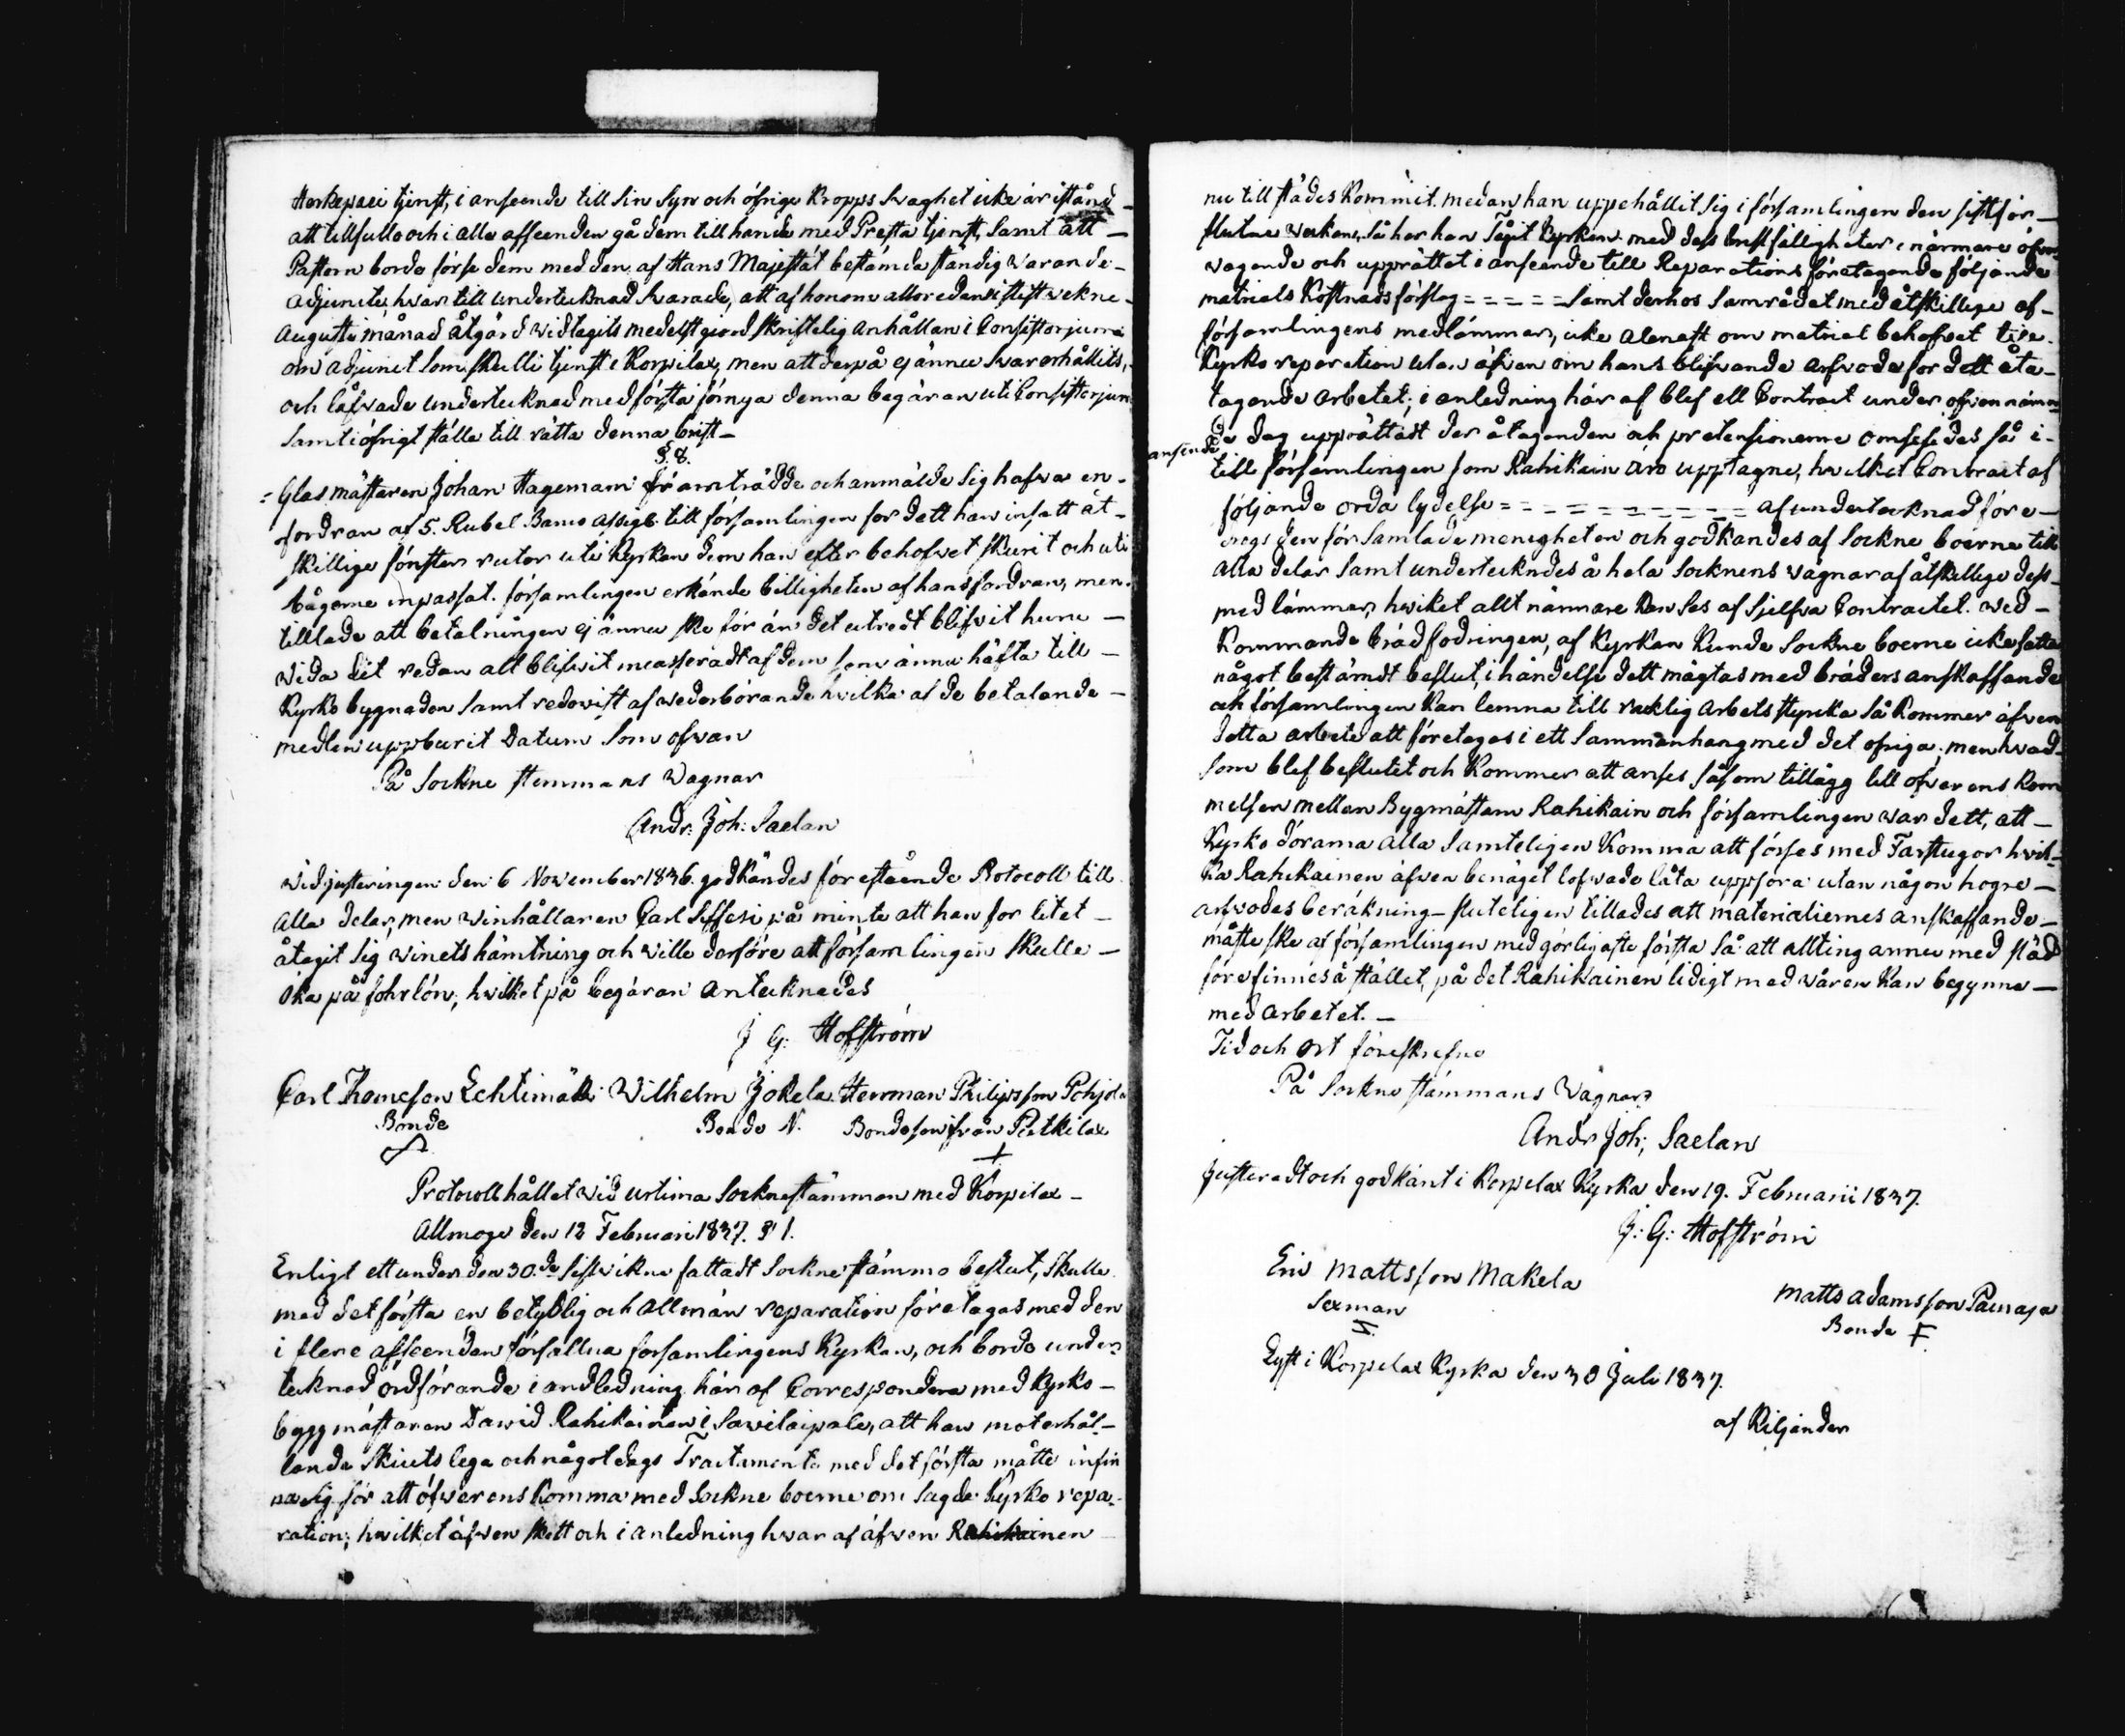 Herkepaei tjenst, i anseende till Sin Syn och öfrige Kropps Svaghet icke är istånd
att tillfullo och i alla afseenden gå dem tillhanda med Presta tjenst, Samt att
Pastorn borde förse dem med den af Hans Majestät bestämda ständig warande
adjuncte, hvartill undertecknad Svarade, att af honom alloredan sistlist vekne
Augusti månad åtgärd widtagits medelst giord skriftelig anhållan i Consistorjum
om adjunct Som skulle tjenst i Korpilax, men att derpå ej ännu Svar erhållits,
och låfvade undertecknad med första förnya denna begäran uti Consistorjum
Samt i öfrigt ställa till rätta denna brist
§. 8.
Glas mästaren Johan Hagemani framträdde och anmälde Sig hafva en
fordran af 5. Rubel Banco Assigt till församlingen for dett han insatt åt
skillige fönster rutor uti Kyrkan dem han efter behofvet skurit och uti
bågorne inpassat. församlingen erkände billigheten af hans fordran, men
tillade att betalningen ej ännu ske för än det utredt blifvit huru
wida Eit redan alt blifwit measseradt af dem som ännu häfta till
Kyrko bygnaden Samt redovist af wederbörande hvilka af de betalande
medlen uppburit Datum Som ofvan
På Sockne stemmans Wagnar
Andr: Joh: Saelan
Wid justeringen den 6 November 1836. godkändes förestående Protocoll till
alla delar, men Winhållaren Carl Siffesi på minte att han for litet
åtagit Sig winets hämtning och wille derföre att församlingen skulle
öka på fohrlön; hwilket på begäran antecknades
J G: Hofström
Carl Thomeson Lehtimäki Wilhelm Jokela Herrman Philipsson Pohjola
Bonde Bonde N. Bondeson ifrån Pitkilax
Protocoll hållet wid urtima Sockne stämman med Korpilax
Allmoge den 12 Februari 1837. § 1.
Enligt ett under den 30.de Sistwikne fattadt Sockne stämmo beslut, skulle
med det första en betydlig och allmän reparation företagas med den
i flere afseenden förfallna församlingens Kyrkan, och borde under
tecknad ordförande i andledning här af Correspondera med Kyrko
byggmästaren Dawid Rahikainen i Sawitaipale, att han mot erhål
lande Skiuts lega och något dags Tractamente med det första måtte infin
na Sig för att öfwerens Komma med Sockne boerne om Sagde Kyrko repa
ration; hwilket äfwen skett och i anledning hwar af äfwen Rahikainen
nu till städes Kommit. medan han uppehållit Sig i församlingen den sistför
flutne weckan, Så har han Tagit Kyrkan med dess bristfälligheter i närmare öfver
vägende och upprättat i anseende till Reparations företagende följande
matrials Kostnads förslag = = = = = Samt derhos Samrådet med åtskillige af
församlingens medlämmar, icke alenast om matrial behofvet till
Kyrko reparation utan äfven om hans blifvande arfvode for dett åta
tagande arbetet; i anledning här af blef ett Contract under ofvan nämn
de dag upprättast der åtaganden och pretensionerne omsesides Så i
ansende
till församlingen som Rahikain äro upptagne, hwilket Contract af
följande orda lydelse = = = = = = = = = af undertecknad före
drogs den för Samlade menigheten och godkandes af Sockne boerne till
alla delar Samt undertecknades å hela Socknens wägnar af åtskillige dess
med lämmar, hwiket allt närmare Kan Ses af Sjelfva Contractet. wed
Kommande brädfodringen, af Kyrkan Kunde Sockne boerne icke fatta
något bestämdt beslut, i händelse dett mägtas med bräders anskaffande
och församlingen Kan lemna till räcklig arbets styrcka Så Kommer äfven
detta arbete att företagas i ett Sammanhang med det öfriga; men hvad
Som blef beslutit och Kommer att anses såsom tillägg till ofverens Kom
melsen mellan Bygmästarn Rahikain och församlingen war dett, att
Kyrko dörarna alla Samteligen Komma att förses med Farstugor hvil
ka Rahikainen äfven benäget lofvade låta uppföra utan någon högre
arfvodes beräkning – sluteligen tillades att materialiernes anskaffande
måste ske af församlingen med görligaste första Så att allting annu med städ
förefinnes å stället, på det Rahikainen lidigt med våren Kan begynna
med arbetet. –
Tid och ort föreskrefne
På Sockne stämmans Wägnar
Andr Joh; Saelan
Justeradt och godkänt i Korpilax Kyrka den 19. Februarii 1837.
J: G: Hofström
Eric Mattsson Makela
Sexman
Matts adamsson Painaja
Bonde
Lyst i Korpilax Kyrka den 30 Juli 1837.
af Kiljander